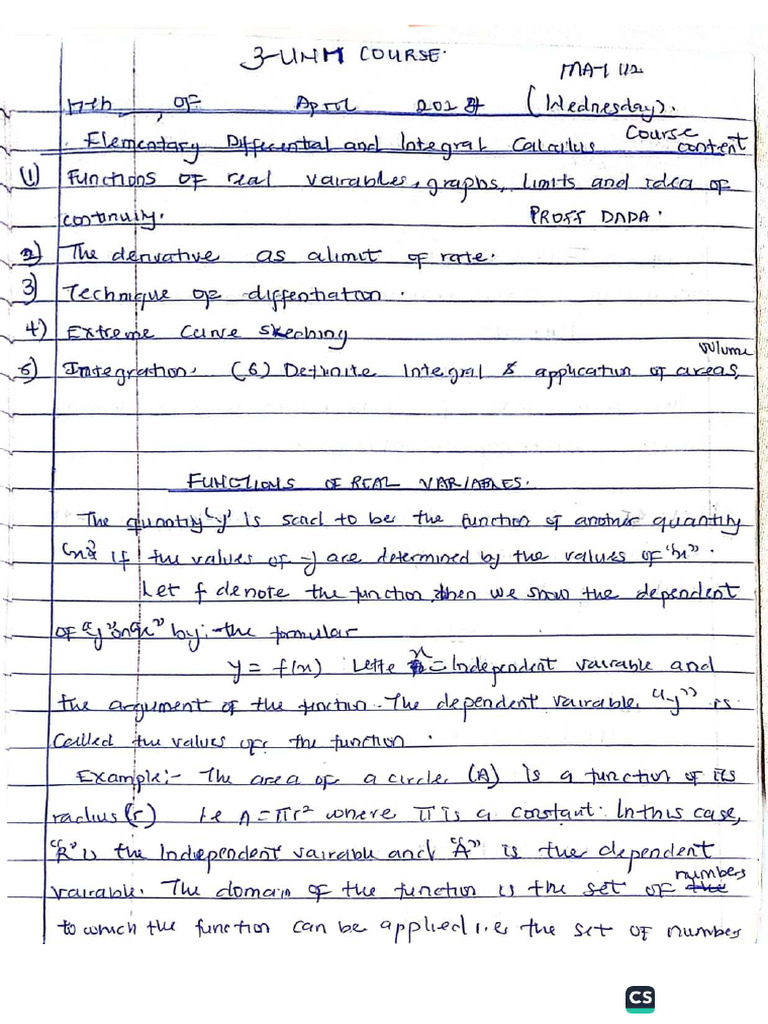 3-UNIT COURSE.
MAT 112
17th of April 2024 (Wednesday).
Elementary Differental and Integral Calculus Course content
(1) Functions of real vairables, graphs, limits and idea of
continuity. PROFF DADA.
2) The derivative as a limit of rate.
3) Technique of diffentiation.
4) Extreme Curve Skeching
5) Integration. (6) Definite Integral & application of areas, volume
FUNCTIONS OF REAL VARIABLES.
The quantity "y" is said to be the function of another quantity
"x" if the values of y are determined by the values of "x".
Let f denote the function, then we show the dependent
of "y" on "x" by:- the formular
y = f(x) Lette x = Independent vairable and
the argument of the function. The dependent vairable "y" is
Called the values off the function.
Example:- The area of a circle (A) is a function of its
radius (r) i.e A = πr² where π is a constant. In this case,
"R" is the Independent vairable and "A" is the dependent
vairable. The domain of the function is the set of numbers
to which the function can be applied i.e the set of numbers
CS